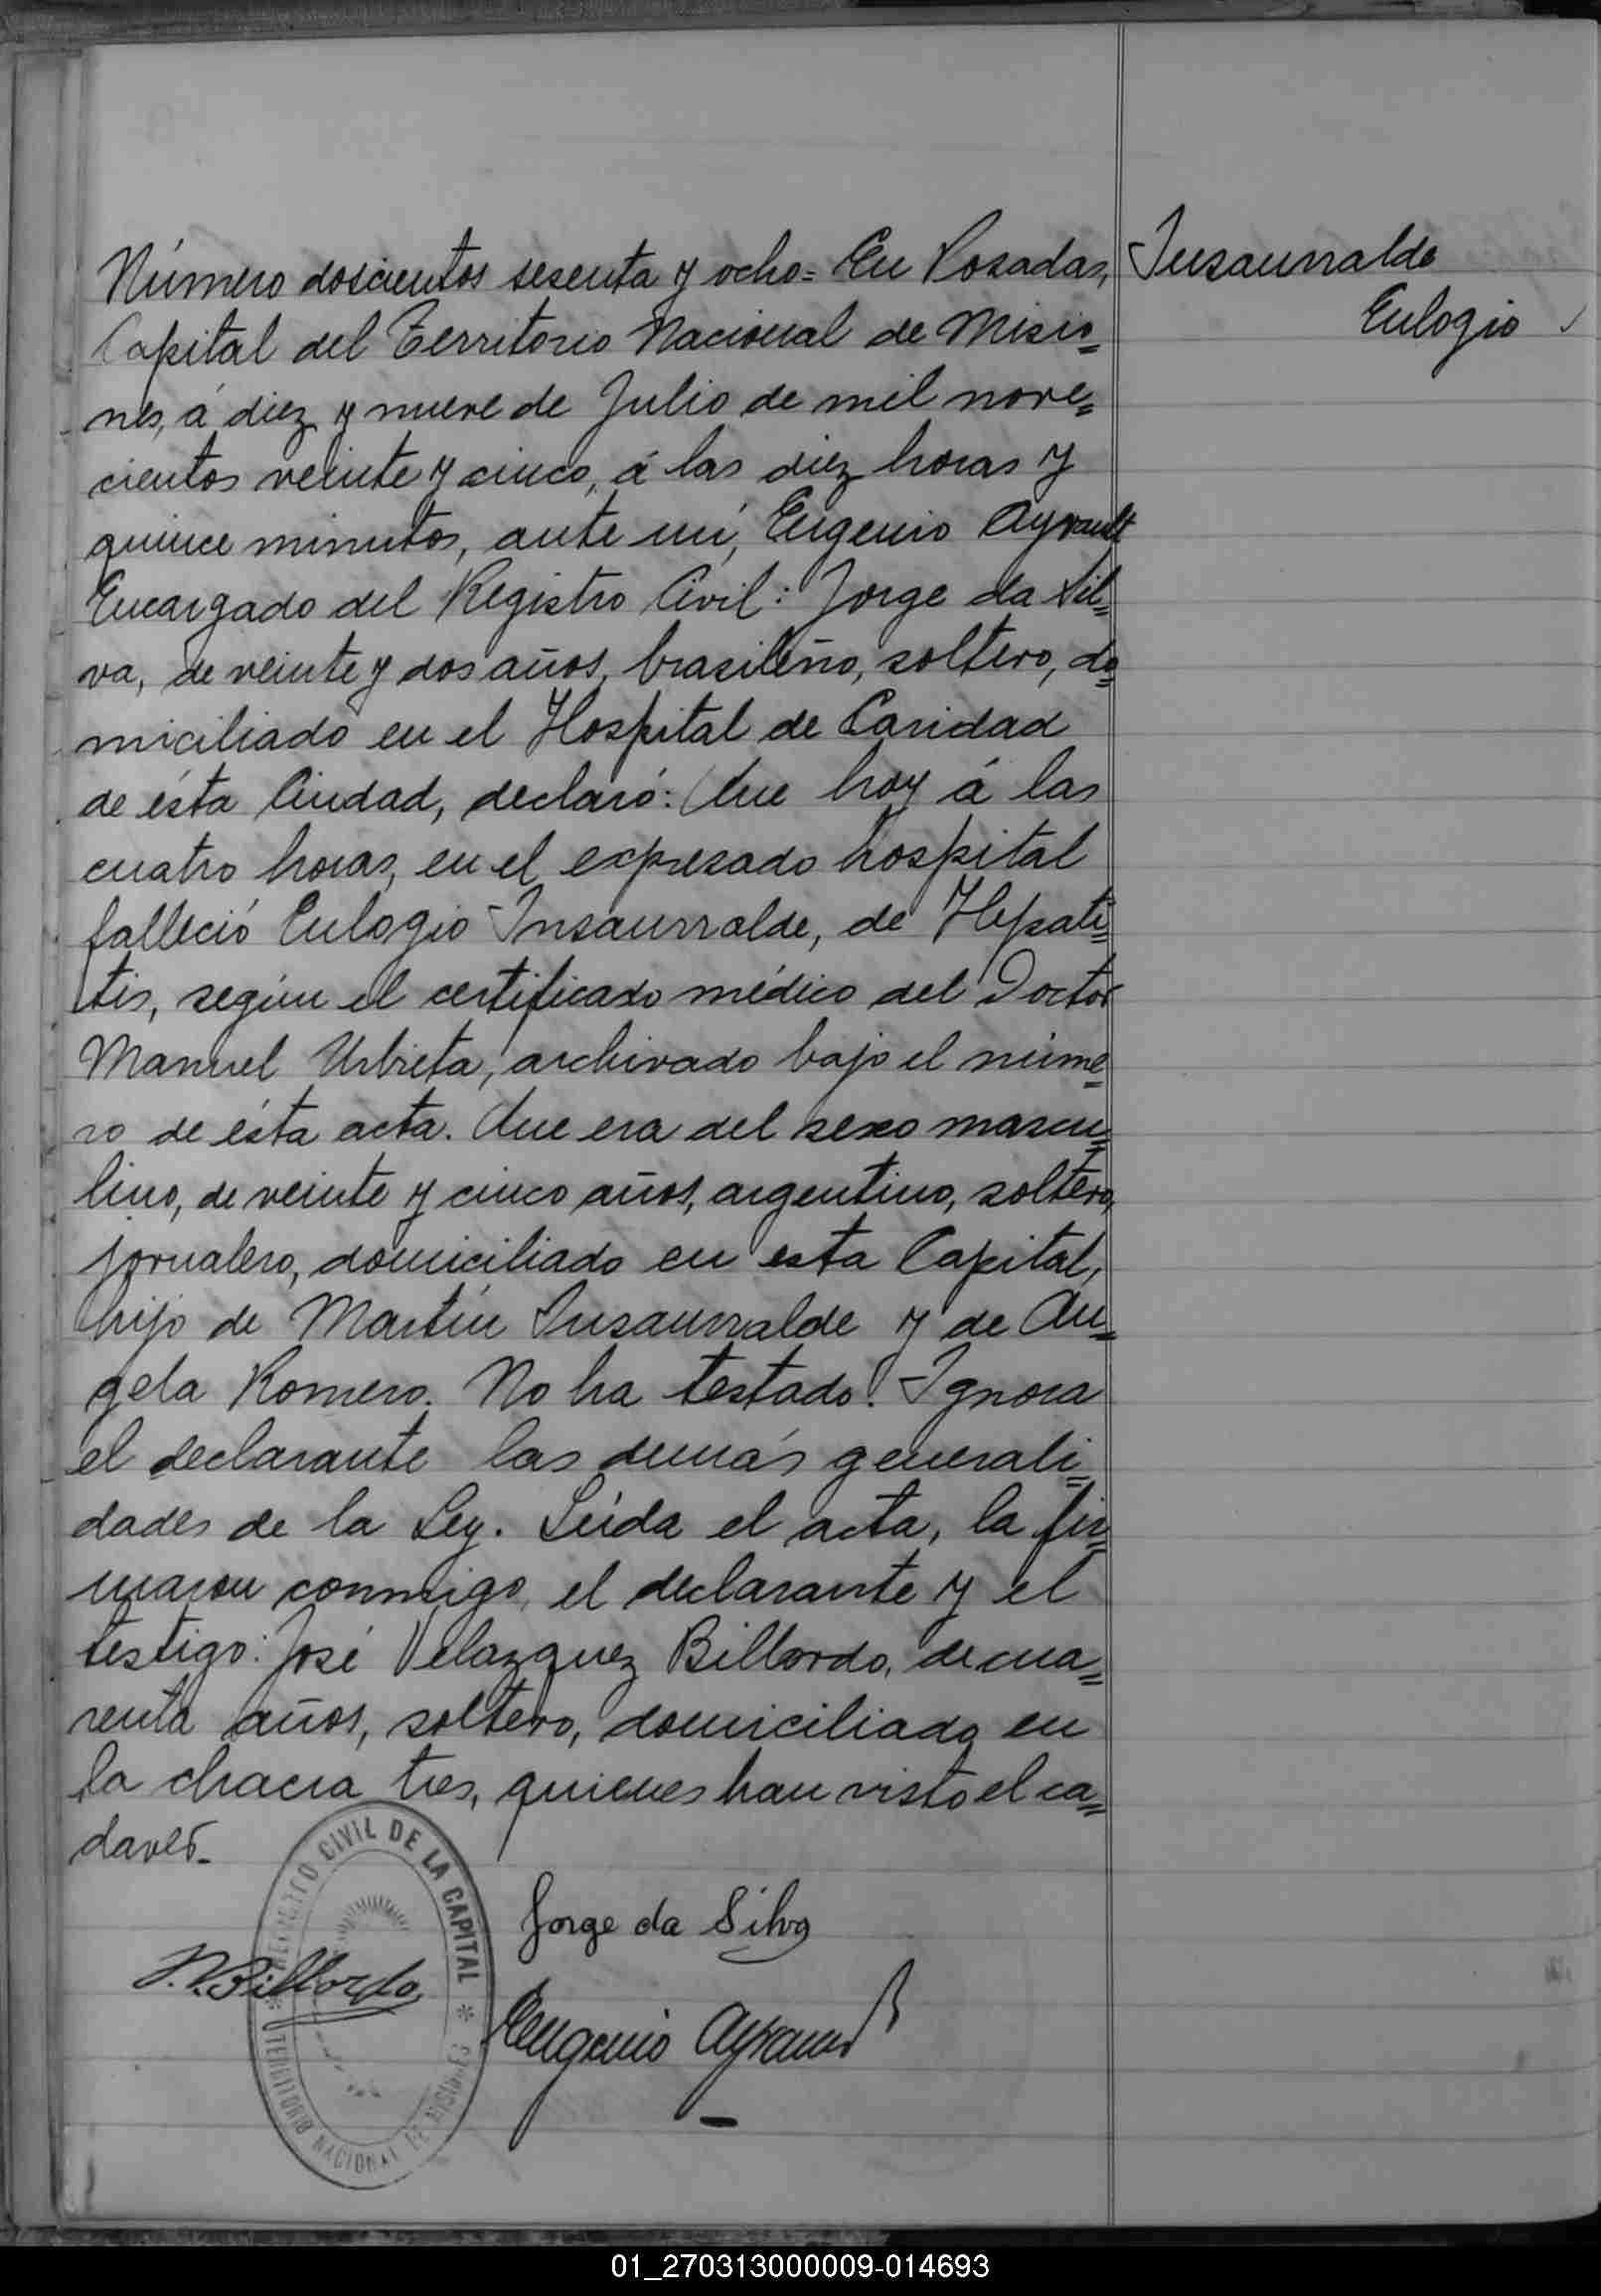 Insaurralde
Eulogio
Número doscientos sesenta y ocho= En Posadas,
Capital del Territorio Nacional de Misio=
nes, á diez y nueve de Julio de mil nove=
cientos veinte y cinco, á las diez horas y
quince minutos, ante mí, Eugenio Ayrault
Encargado del Registro Civil: Jorge da Sil=
va, de veinte y dos años, brasileño, soltero, do=
miciliado en el Hospital de Caridad
de ésta Ciudad, declaró: Que hoy á las
cuatro horas, en el expresado hospital
falleció Eulogio Insaurralde, de Hepati=
tis, según el certificado médico del Doctor
Manuel Urbieta, archivado bajo el núme=
ro de ésta acta. Que era del sexo mascu=
lino, de veinte y cinco años, argentino, soltero,
jornalero, domiciliado en esta Capital,
hijo de Martín Insaurralde y de An=
gela Romero. No ha testado. Ignora
el declarante las demás generali=
dades de la Ley. Leída el acta, la fir=
maron conmigo, el declarante y el
testigo: José Velazquez Billordo, de cua=
renta años, soltero, domiciliado en
la chacra tres, quienes han visto el ca=
daver.-
Jorge da Silva
J.V.Billordo
Eugenio Ayrault
REGISTRO CIVIL DE LA CAPITAL
* TERRITORIO NACIONAL DE MISIONES *
01_270313000009-014693